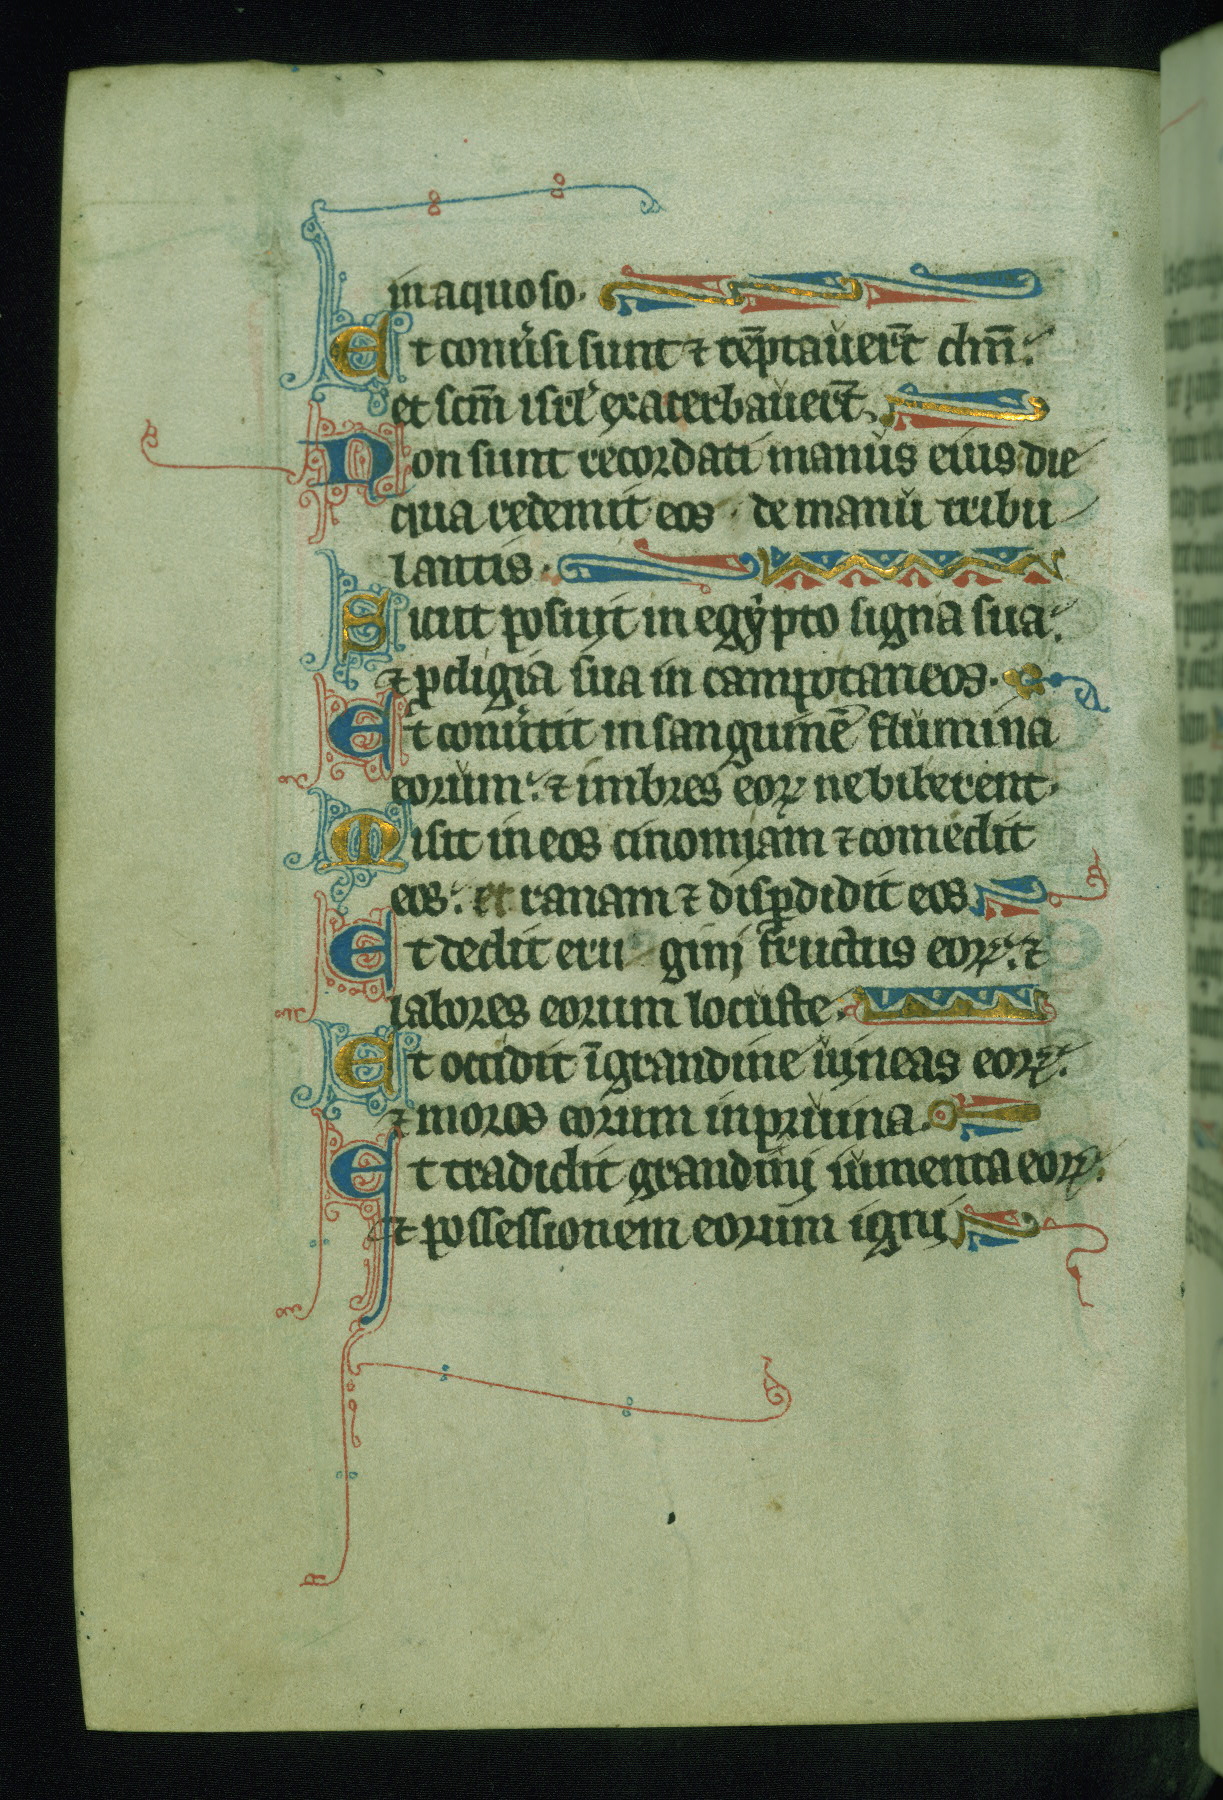 in aquoso.
Et conuˀsi sunt ⁊ te̅ptauer̅t dm̅:
et scm̅ isrl' exacerbauer̅t.
Non sunt recordati manus eius die
qua redemit eos de manu tribu
lantis.
Sicut posuit in egypto signa sua:
⁊ ꝓdigia sua in campotaneos.
Et conuˀtit in sanguine̅ flumina
eorum: ⁊ imbres eoꝝ ne biberent.
Misit in eos cinomiam ⁊ comedit
eos: et ranam ⁊ disꝑdidit eos
Et dedit eru gini fructus eoꝝ: ⁊
labores eorum locuste.
Et occidit i̅ grandine uineas eoꝝ:
⁊ moros eorum in pruina.
Et tradidit grandini iumenta eoꝝ:
⁊ possessionem eorum igni